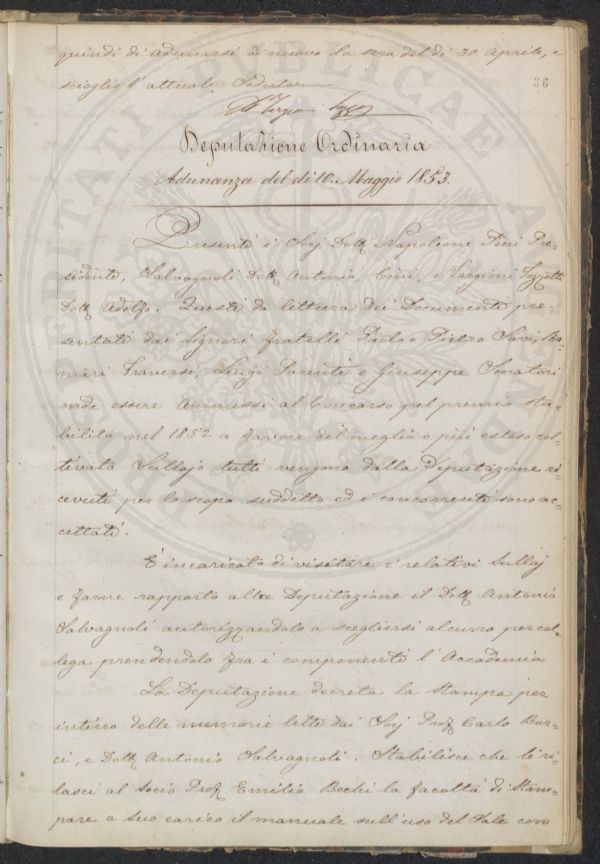 quindi di adunarsi di nuovo la sera del dì 30. Aprile, e
scioglie l'attuale Seduta
86
Deputazione Ordinaria
Adunanza del dì 10. Maggio 1853.
Presenti i Socj Dott. Napoleone Pini Pre-
sidente, Salvagnoli Dott. Antonio, Cini, e Targioni Tozzetti
Dott. Adolfo. Questi dà lettura dei Documenti pre-
sentati dai Signori fratelli Paolo e Pietro Savi, Ra-
nieri Traversi, Luigi Parenti e Giuseppe Senatori
onde essere ammessi al Concorso pel premio sta-
bilito nel 1852 a favore del meglio e più esteso col-
tivato Sullajo tutti vengono dalla Deputazione ri-
cevuti per lo scopo suddetto ed i concorrenti sono ac-
cettati.
È incaricato di visitare i relativi Sullaj
e farne rapporto alla Deputazione il Dott. Antonio
Salvagnoli autorizzandolo a scegliersi alcuno per col-
lega prendendolo fra i componenti l'Accademia
La Deputazione decreta la Stampa per
intiero delle memorie lette dai Socj Prof. Carlo Bur-
ci, e Dott. Antonio Salvagnoli. Stabilisce che si ri-
lasci al Socio Prof. Emilio Bechi la facoltà di Stam-
pare a suo carico il manuale sull'uso del Sale con
PROSPERITATI PUBLICAE AUGENDAE